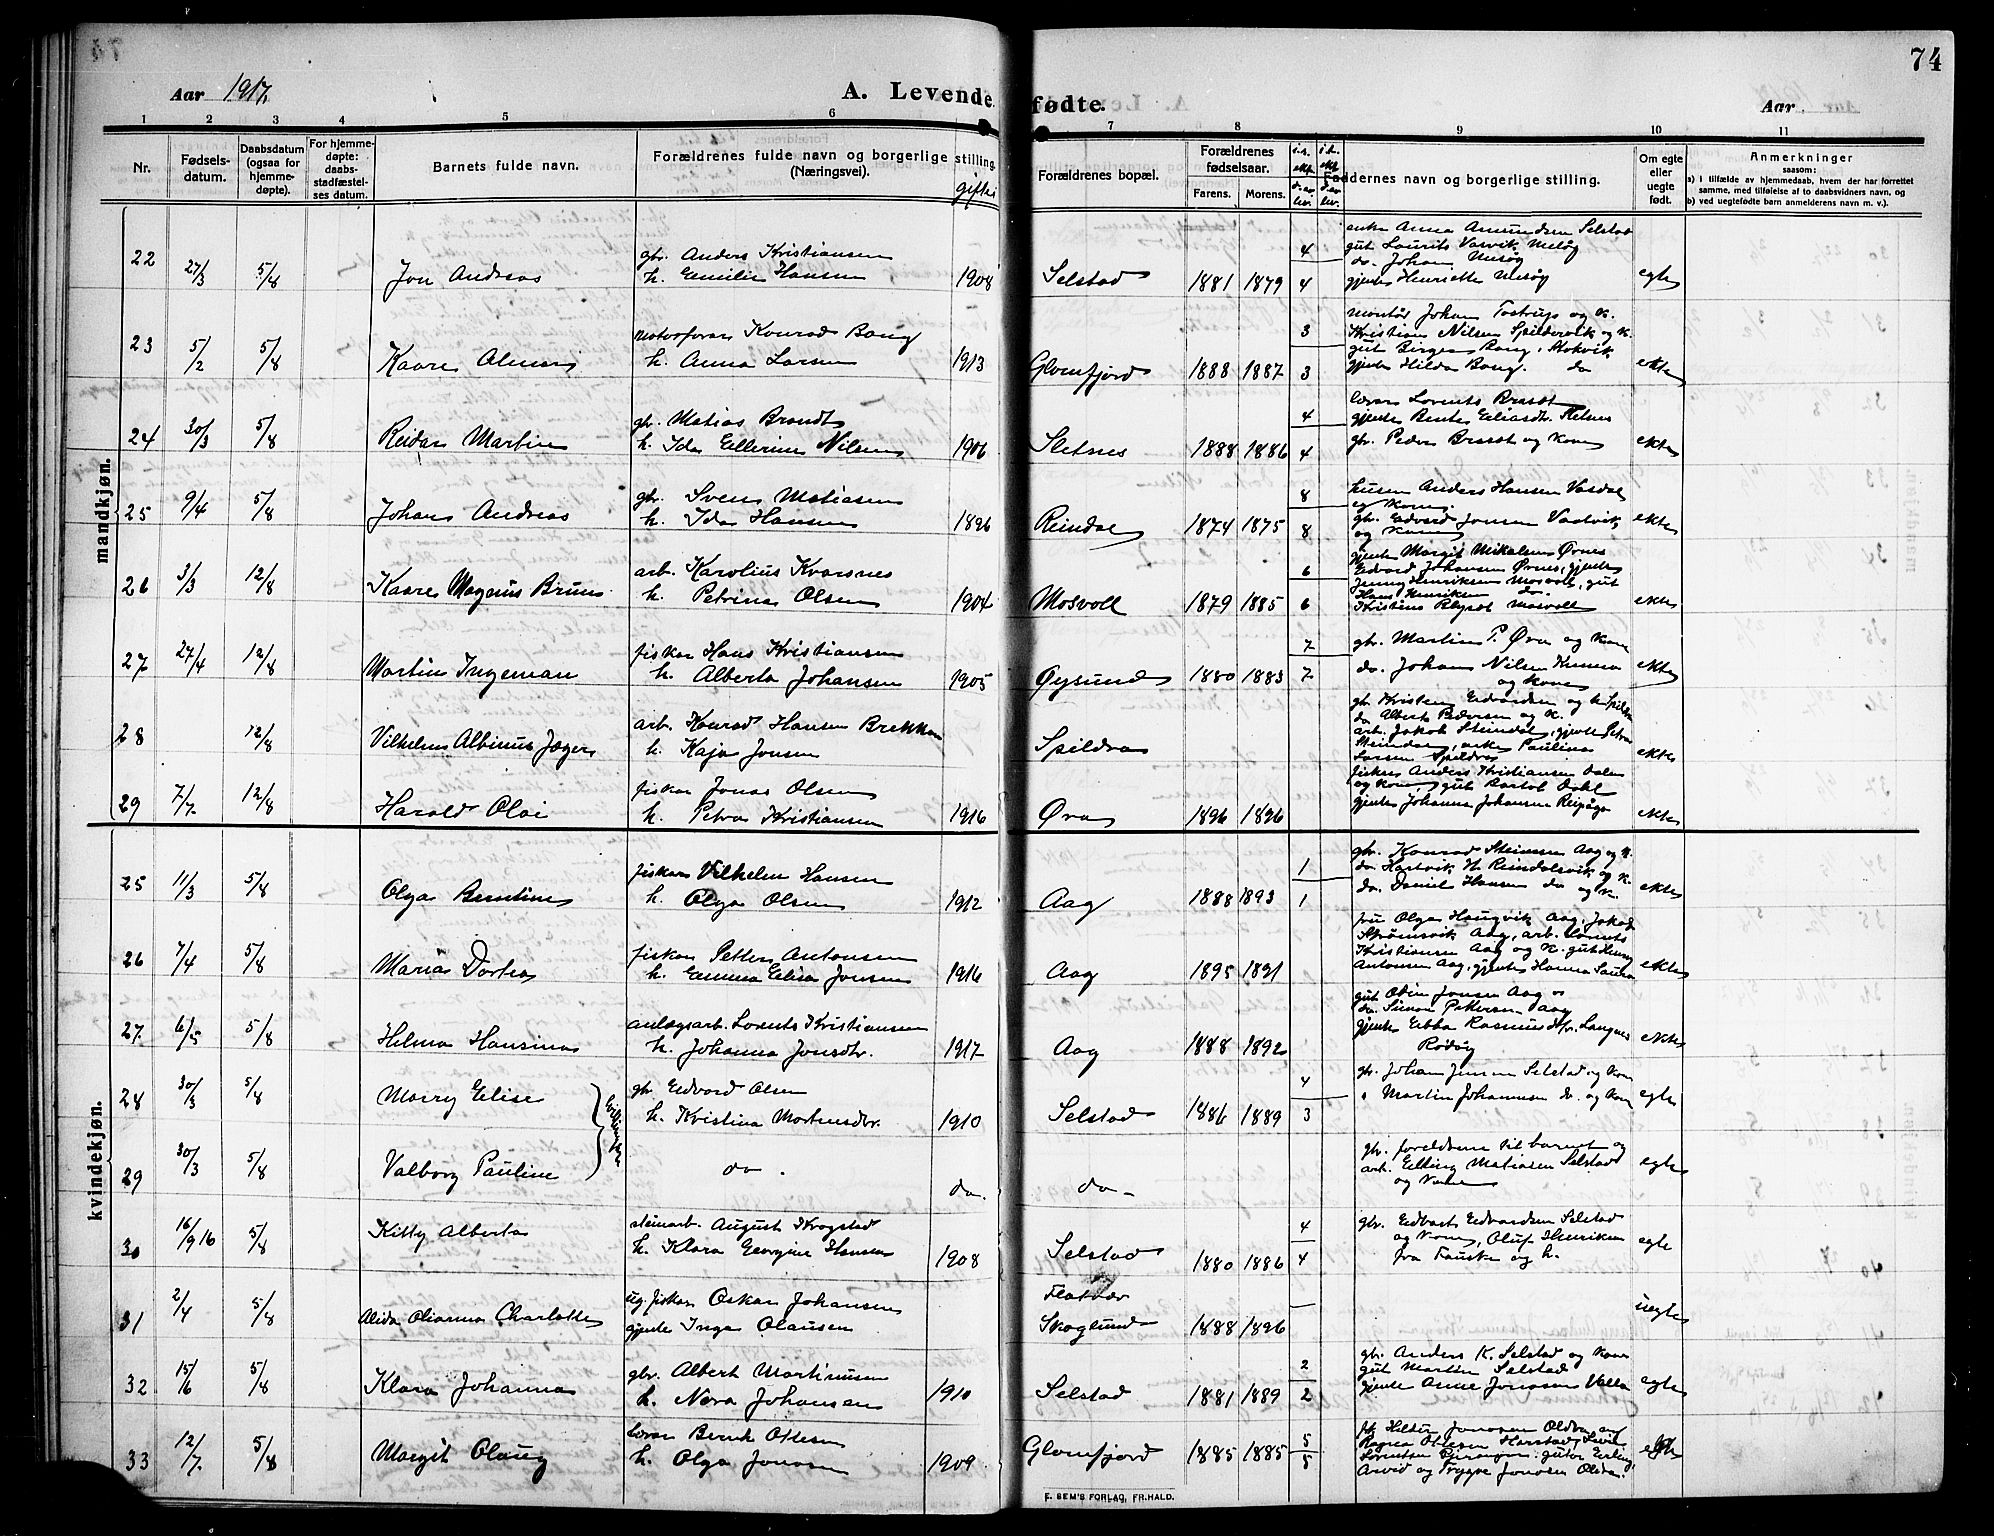 74
Aar 1917.
A. Levende fødte.
Aar
1 2 3 4 5 6 7 8 9 10 11
Nr.
Fødsels-
datum.
Daabsdatum
(ogsaa for
hjemme-
døpte).
For hjemme-
døpte:
daabs-
stadfæstel-
ses datum.
Barnets fulde navn.
Forældrenes fulde navn og borgerlige stilling.
(Næringsvei).
gifte
Forældrenes bopæl.
Forældrenes
fødselsaar.
Farens. Morens.
Faddernes navn og borgerlige stilling.
Om egte
eller
uegte
født.
Anmerkninger
saasom:
a) i tilfælde av hjemmedaab, hvem der har forrettet
samme, med tilføielse af to daabsvidners navn, og
b) ved uegtefødte barn anmelderens navn m. v.).
mandkjøn.
22 27/3 5/8 Jon Andreas
gbr. Anders Kristiansen
h. Emilie Hansen
1908 Selstad 1881 1879 4 4
enke Anna Amundsen Selstad
gut Laurits Vasvik Meløy
do. Johan Meløy
gjente Henriette Meløy
egte
23 5/2 5/8 Kaare Almar
motorfører Konrad Bang
h. Anna Larsen
1913 Glomfjord 1888 1887 3 3
montør Johan Tostrup og k.
Kristian Nilsen Spildervik og k.
gut Birger Bang, Stokvik
gjente Hilda Bang. do
ekte
24 30/3 5/8 Reidar Martin
gbr. Matias Brandt
h. Ida Ellerine Nilsen
1906 Sletnes 1888 1886 4 4
lærer Lorents Brandt
gjente Bente Eliasdtr. Selnes
gbr. Peder Brandt og kone
ekte
25 9/4 5/8 Johan Andreas
gbr. Svein Matiasen
h. Ida Hansen
1896 Reindal 1874 1875 8 8
husm. Anders Hansen Vasdal
og kone.
gbr. Edvard Jonsen Vastvik
og kone
ekte
26 3/3 12/8 Kaare Magnus Bruun
arb. Karolius Kvarsnes
h. Petrina Olsen
1904 Mosvoll 1879 1885 6 6
gjente Margit Mikalsen Ørnes
Edvard Johansen Ørnes, gjente
Jenny Henriksen Mosvoll, gut
Hans Henriksen do.
Kristine Mosvoll
ekte
27 27/4 12/8 Martin Ingeman
fisker Hans Kristiansen
h. Alberta Johansen
1905 Øysund 1880 1883 7 7
gbr. Martin P. Øra og kone
do. Johan Nilsen Kunna
og kone
ekte
28 12/8 Vilhelm Albinus Jæger
arb. Konrad Hansen Brekka
h. Kaja Jonsen
Spildra
gbr. Kristen Edvardsen og k. Spildra
do Albert Pedersen og k.
arb. Jakob Steindal, gjente Petra
Steindal, enke Paulina
Larsen Spildra
ekte
29 7/7 12/8 Harald Olai
fisker Jonas Olsen
h. Petra Kristiansen
1916 Øra 1896 1896
fisker Anders Kristiansen Dalen
og kone, gut Bartol Dahl
gjente Johanna Johansen Reipåga
ekte
kvindekjøn.
25 11/3 5/8 Olga Berntine
fisker Vilhelm Hansen
h. Olga Olsen
1912 Aag 1888 1893 1 1
gbr. Konrad Steinsen Aag og k.
do Hartvik H. Reindalsvik og k.
do. Daniel Hansen do og k.
ekte
26 7/4 5/8 Maria Dortea
fisker Petter Antonsen
h. Emma Elisa Jonsen
1916 Aag 1895 1891
fru Olga Haugvik Aag, Jakob
Strømsvik Aag, arb. Lorents
Kristiansen Aag og k. gut Henry
Antonsen Aag, gjente Hanna
ekte
27. 6/5 5/8 Helma Hansina
anlægsarb. Lorents Kristiansen
h. Johanna Jonsdtr.
1917 Aag 1888 1892
gut Odin Jonsen Aag
do. Simon Pettersen Aag
gjente Ebba Rasmus Langnes
Rødøy
ekte
28 30/3 5/8 Marry Elise
gbr Edvard Olsen
h. Kristina Mortensdtr.
1910 Selstad 1886 1889 4 3
gbr. Johan Jensen Selstad og kone
" Martin Johannesen do. og kone
egte
29 30/3 5/8 Valborg Pauline
do.
do. do-
gbr. foreldrene til barnet og
arb. Elling Matiasen Selstad
og
egte
30 16/9 16 5/8 Kitty Alberta
steinarb. August Krogstad
h. Klara Georgine Hansen
1908 Selstad 1880 1886 4 4
gbr. Edvart Edvardsen Selstad
og kone, Oluf Henriksen
fra Fauske og h.
egte
31 2/4 5/8 Alida Olianna Charlotte
ug. fisker Oskar Johansen
gjente Inga Olausen
Flatvær
Skoglund 1888 1896
uegte
32 15/6 5/8 Klara Johanna
gbr. Albert Martinusen
h. Nora Johansen
1910 Selstad 1881 1889 2 2
gbr. Anders K. Selstad og kone
gut Martin Selstad
gjente Anne Jonassen Valla
egte
33 12/7 5/8 Margit Olaug
lærer Bernt Ottesen
h. Olga Jonasen
1909 Glomfjord 1885 1885 5 5
Jonassen Oldra og
Ragna Ottesen Harstad,
Lorentsen
Arvid og Trygve Jonasen Oldra.
egte
E. SEM'S FORLAG, FR.HALD.